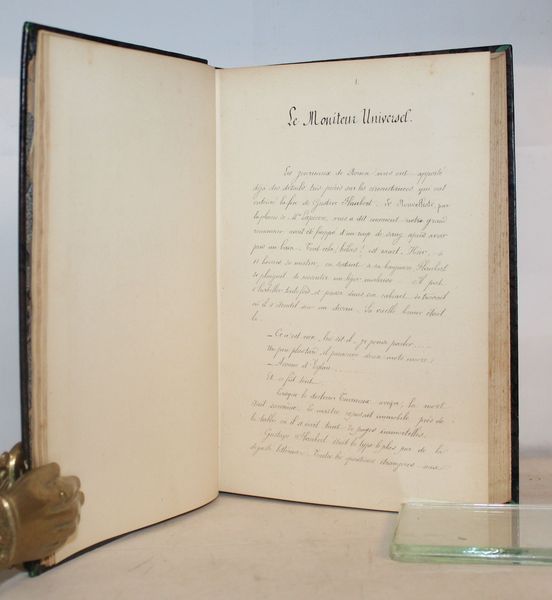 1.
Le Moniteur Universel.
Les journaux de Rouen nous ont apporté
déjà des détails très précis sur les circonstances qui ont
entouré la fin de Gustave Flaubert. Le Nouvelliste, par
la plume de Mr Lapierre, nous a dit comment notre grand
romancier avait été frappé d'un coup de sang après avoir
pris un bain. Tout cela, hélas! est exact. Hier,
et heures du matin, en sortant de sa baignoire, Flaubert
se plaignit de ressentir un léger malaise
s'habiller toutefois et passa dans son cabinet de travail
où il s'étendit sur un divan. La vieille bonne était
là.
— Ce n'est rien, lui dit-il, je pense parler
Un peu plus tard, il prononça deux mots encore:
— Avenue d'Eylau
Et ce fut tout.
Lorsque le docteur Tourneux arriva, la mort
était survenue. Le maître reposait immobile près de
la table où il a écrit tant de pages immortelles.
Gustave Flaubert était le type le plus pur de la
Toutes les questions étrangères aux